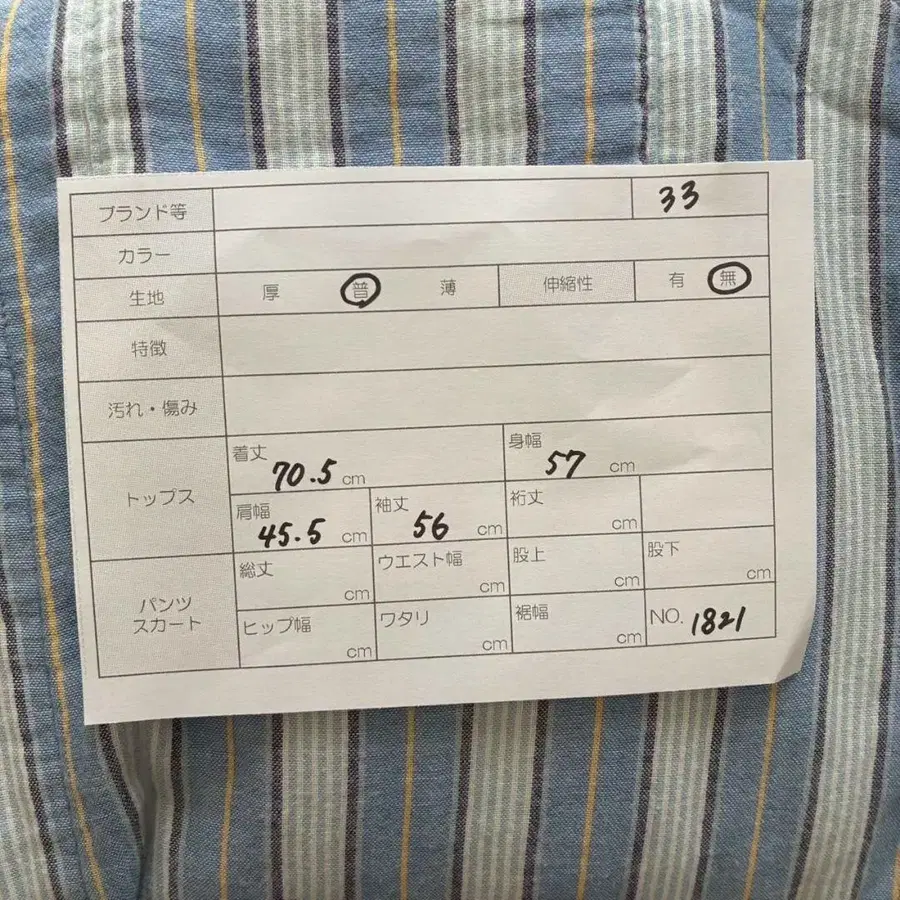 ブランド等 33
カラー
生地 厚 普 薄 伸縮性 有 無
特徴
汚れ・傷み
トップス
着丈 70.5 cm 身幅 57 cm
肩幅 45.5 cm 袖丈 56 cm 裄丈 cm
パンツ
スカート
総丈 cm ウエスト幅 cm 股上 cm 股下 cm
ヒップ幅 cm ワタリ cm 裾幅 cm NO. 1821